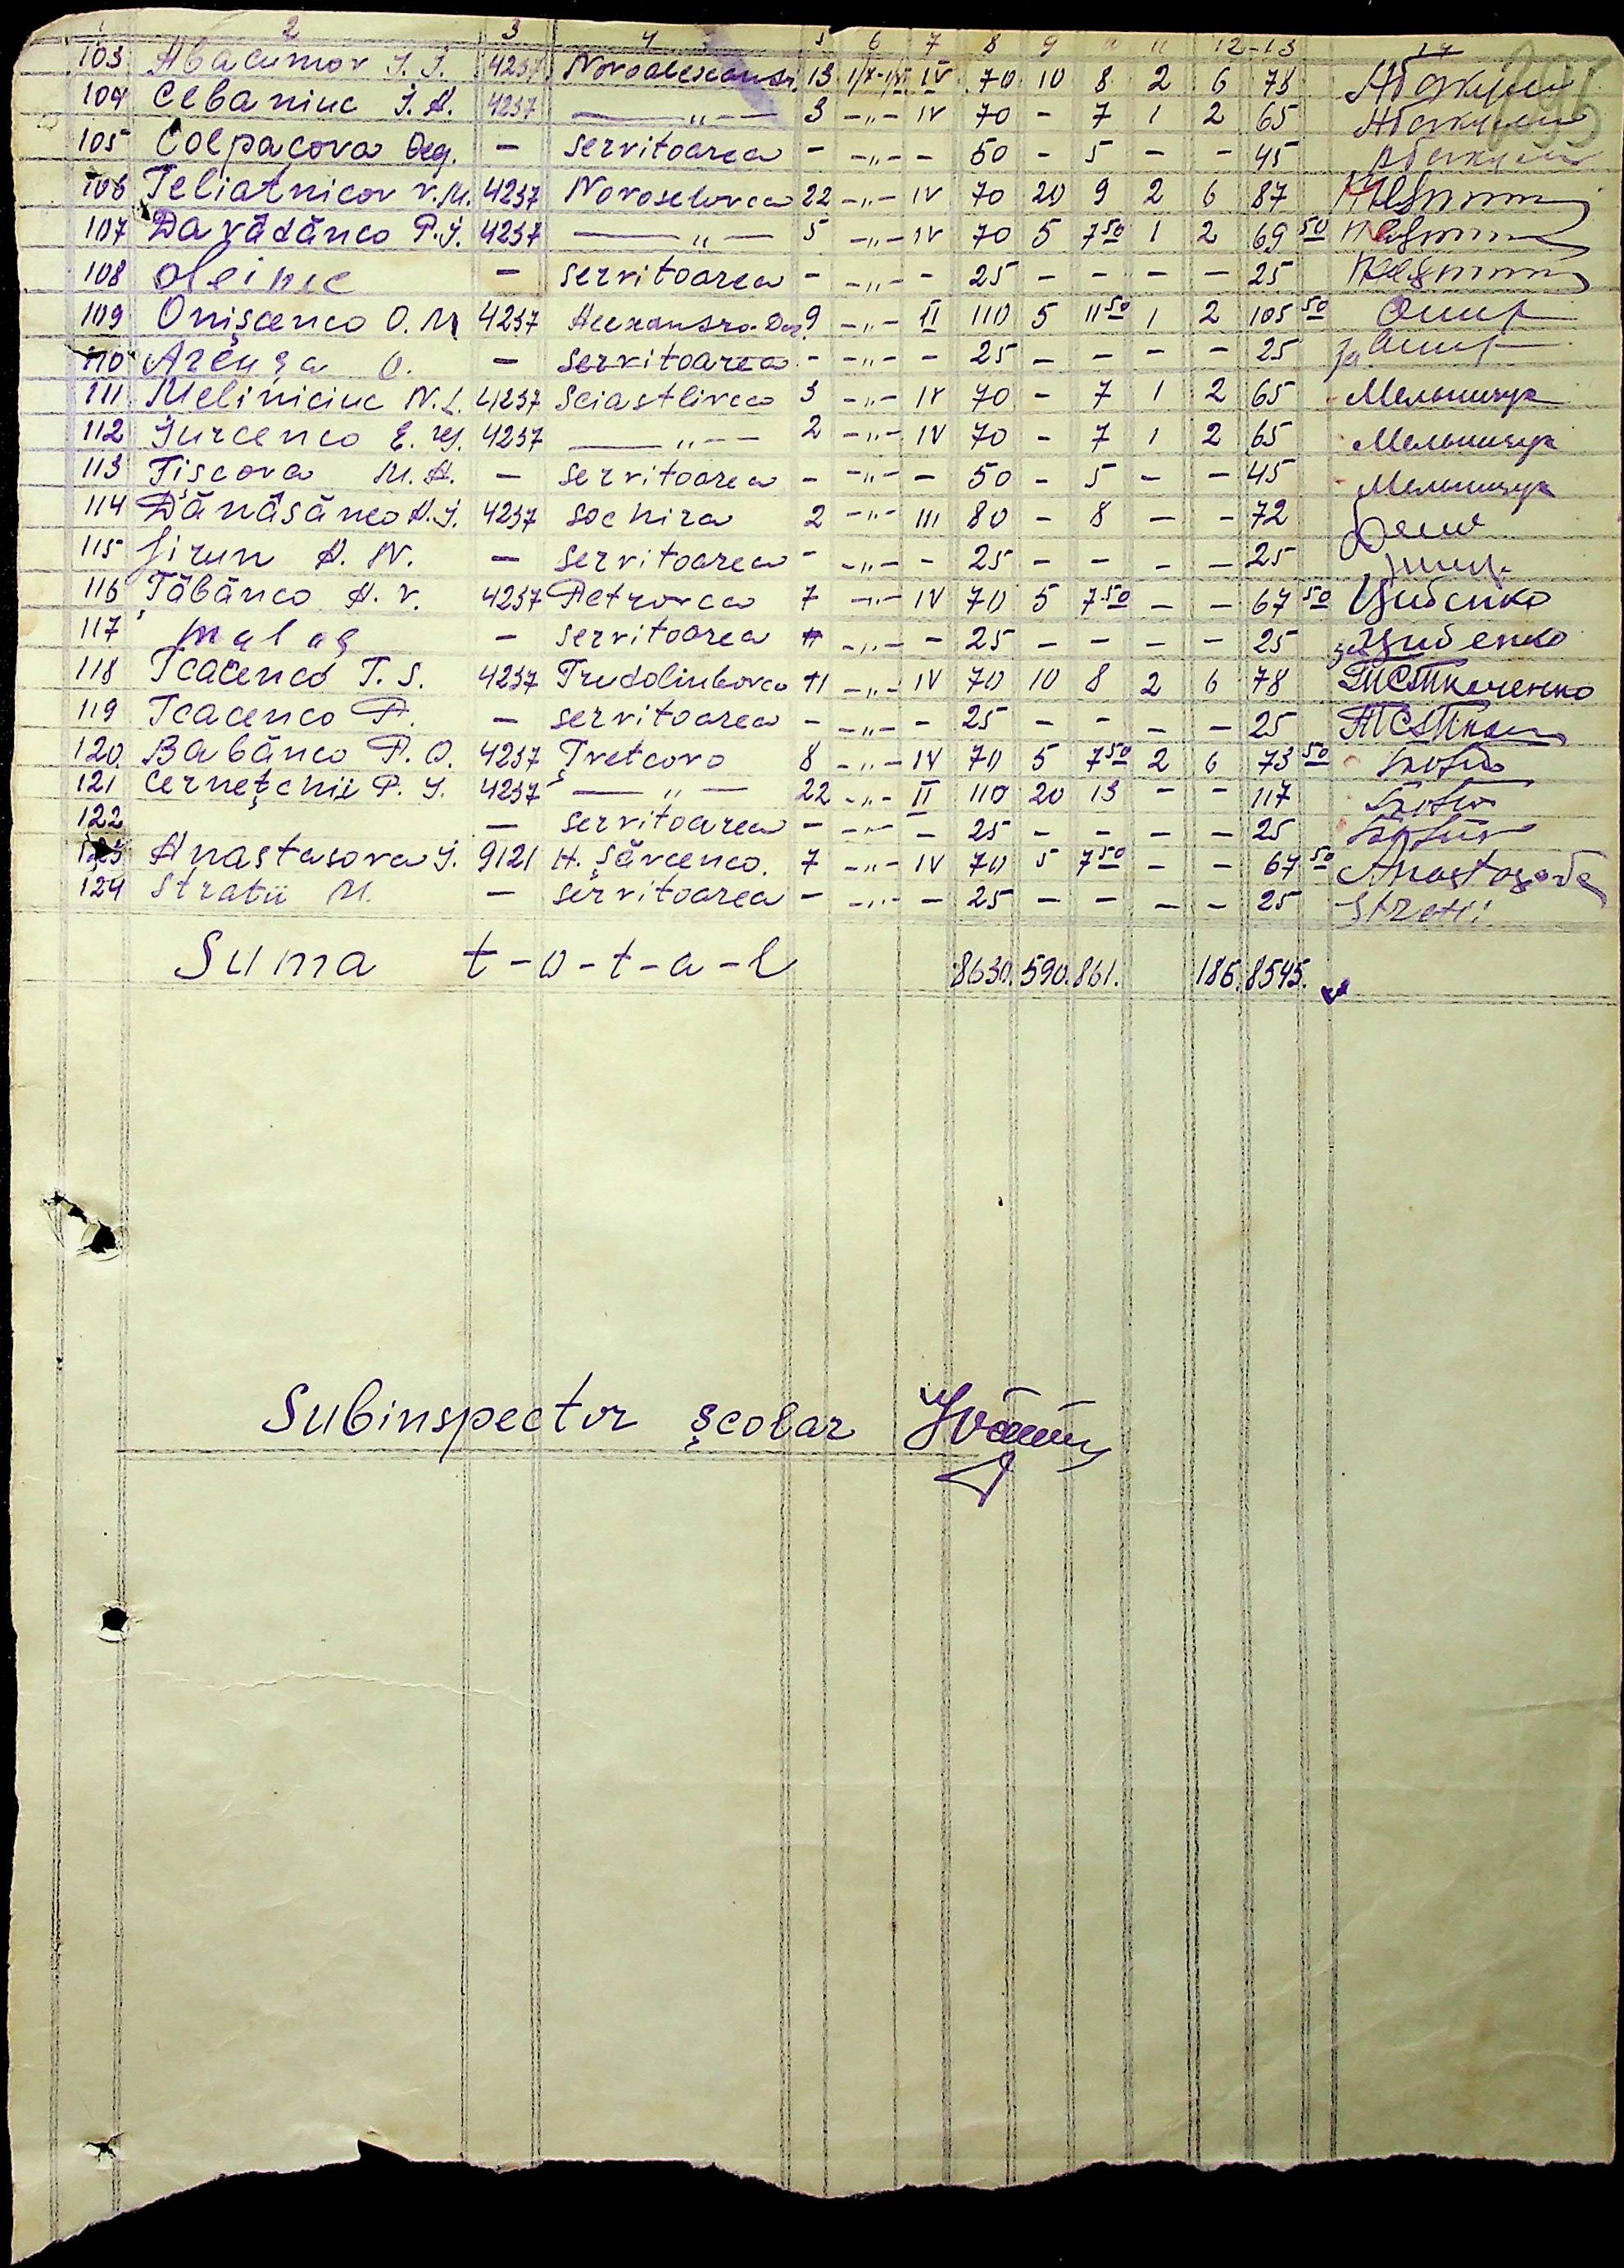 1 2 3 4 5 6 7 8 9 11 12-13 14
103 Abacumov I. I. 4237 Novoalexandr. 13 1/X-1/XI IV 70 10 8 2 6 78
104 Cebaniuc I. A. 4237 —„— 3 -„- IV 70 - 7 1 2 65
105 Colpacova Deg. - servitoarea - -„- - 50 - 5 - - 45
106 Teliatnicov V. M. 4237 Novoselovca 22 -„- IV 70 20 9 2 6 87
107 Davădănco P. I. 4237 —„— 5 -„- IV 70 5 7 50 1 2 69 50
108 Oleinic - servitoarea - -„- - 25 - - - - 25
109 Onișcenco O. M. 4237 9 -„- II 110 5 11 50 1 2 105 50
110 O. - servitoarea - -„- - 25 - - - - 25
111 Meliniciuc N. L. 4237 Sciastlivca 3 -„- IV 70 - 7 1 2 65 Мельничук
112 Iurcenco E. 4237 —„— 2 -„- IV 70 - 7 1 2 65 Мельничук
113 Tiscova M. A. - servitoarea - -„- - 50 - 5 - - 45 Мельничук
114 A. I. 4237 Sochira 2 -„- III 80 - 8 - - 72
115 Jirun A. N. - servitoarea - -„- - 25 - - - - 25
116 Țăbănco A. V. 4237 Petrovca 7 -„- IV 70 5 7 50 - - 67 50 Цибенко
117 - servitoarea -„- - 25 - - - - 25 за Цибенко
118 Tcacenco T. S. 4237 Trudoliubovca 11 -„- IV 70 10 8 2 6 78 ТСТкаченко
119 Tcacenco P. - servitoarea - -„- - 25 - - - - 25
120 Babănco P. O. 4237 Țvetcovo 8 -„- IV 70 5 7 50 2 6 73 50
121 Cernețchii P. I. 4237 —„— 22 -„- II 110 20 13 - - 117
122 - servitoarea - -„- - 25 - - - - 25
123 Anastasova I. 9121 H. Șăvcenco. 7 -„- IV 70 5 7 50 - - 67 50 Anastasova
124 Stratii M. - servitoarea - -„- - 25 - - - - 25 Stratii
Suma t-o-t-a-l 8630. 590. 861. 186. 8545.
Subinspector școlar